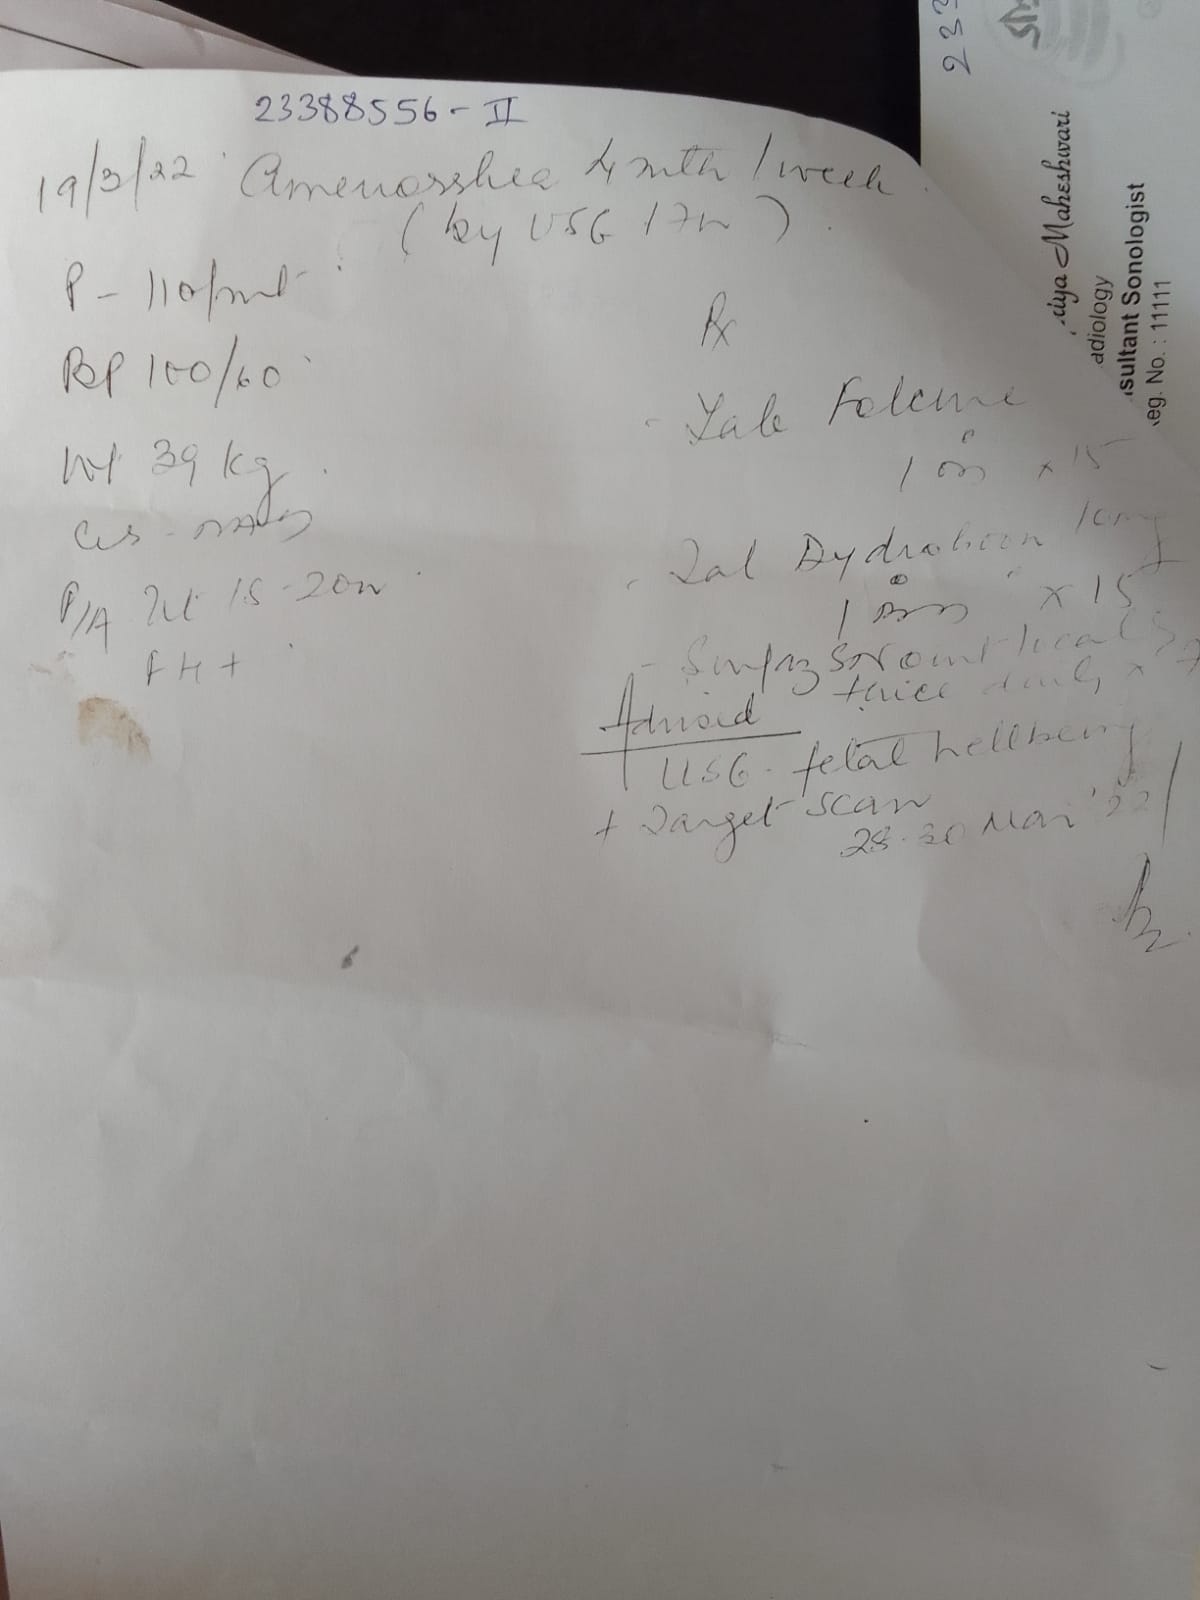 23388556-II
19/3/22 Amenorrhea 4 mth 1 week
(by USG 17w)
P - 110/mt
BP 100/60
Wt 39 kg
P/A Ut 18-20w
FH+
Rx
- Tab
1 x 15
- Tab 10mg
1 x 15
- oint local
thrice daily x 7
Advised
USG - fetal wellbeing
+ Target scan
28-30 Mar '22
233
Maheshwari
adiology
sultant Sonologist
eg. No. : 11111